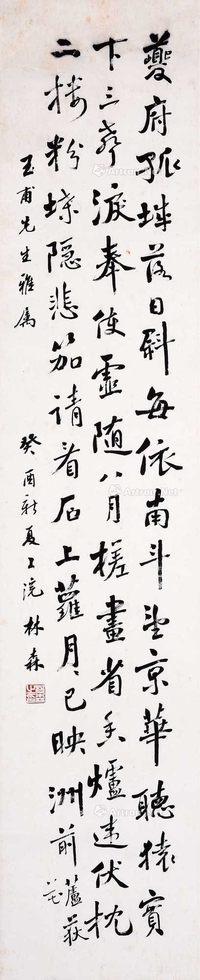 夔府孤城落日斜每依南斗望京華聽猿實
下三聲淚奉使虛隨八月槎畫省香爐違伏枕
山樓粉堞隱悲笳請看石上蘿月已映洲前蘆荻花
玉甫先生雅屬 癸酉新夏上浣 林森